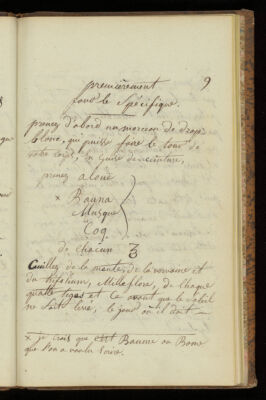 9
premièrement
pour le Spécifique.
prenez d'abord un morceau de drap
blanc, qui puisse faire le tour de
votre corps, en guise de ceinture,
prenez aloüe
x Bauna
Musque
Coq
de chacun ʒ
Cueillez de la mente, de la romaine et
du trifolium, Milleflore, de chaque
quatre tiges et le avant que le soleil
ne soit levé, le jour où il doit –
x je crois que c'est Baume ou Bome
que l'on a voulu